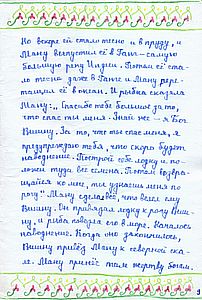 Но вскоре ей стало тесно и в пруду, и
Ману выпустил её в Ганг – самую
большую реку Индии. Потом ей ста-
ло тесно даже в Ганге и Ману пере-
тащил её в океан. И рыбка сказала
Ману: „ Спасибо тебе большое за то,
что спас ты меня. Знай же – я Бог
Вишну. За то, что ты спас меня, я
предупреждаю тебя, что скоро будет
наводнение. Построй себе лодку и по-
ложи туда все семена. Потом возвра-
щайся ко мне, ты узнаешь меня по
рогу" Ману сделал всё, что велел ему
Вишну. Он привязал лодку к рогу Виш-
ну, и рыба повезла его в море. Началось
наводнение. Когда оно закончилось,
Вишну привёз Ману к северной ска-
ле. Ману принёс там жертву Богам.
9